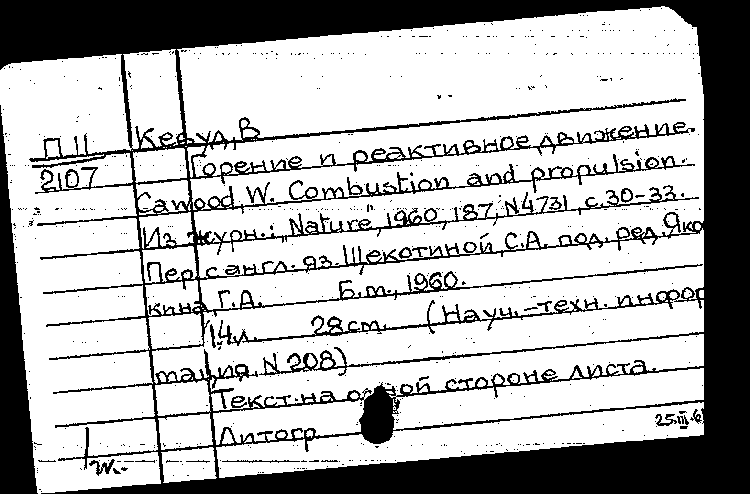 П 11 Кевуд, В
2107 Горение и реактивное движение.
Cawood, W. Combustion and propulsion.
Из журн.: „Nature", 1960, 187, N4731, с. 30-33.
Пер. с англ. яз. Щекотиной, С.А. под. ред. Яко
кина, Г.А. Б.м., 1960.
14л. 28 см. (Науч.-техн. инфор
мация, N 208)
Текст на одной стороне листа.
Литогр
25.III.6